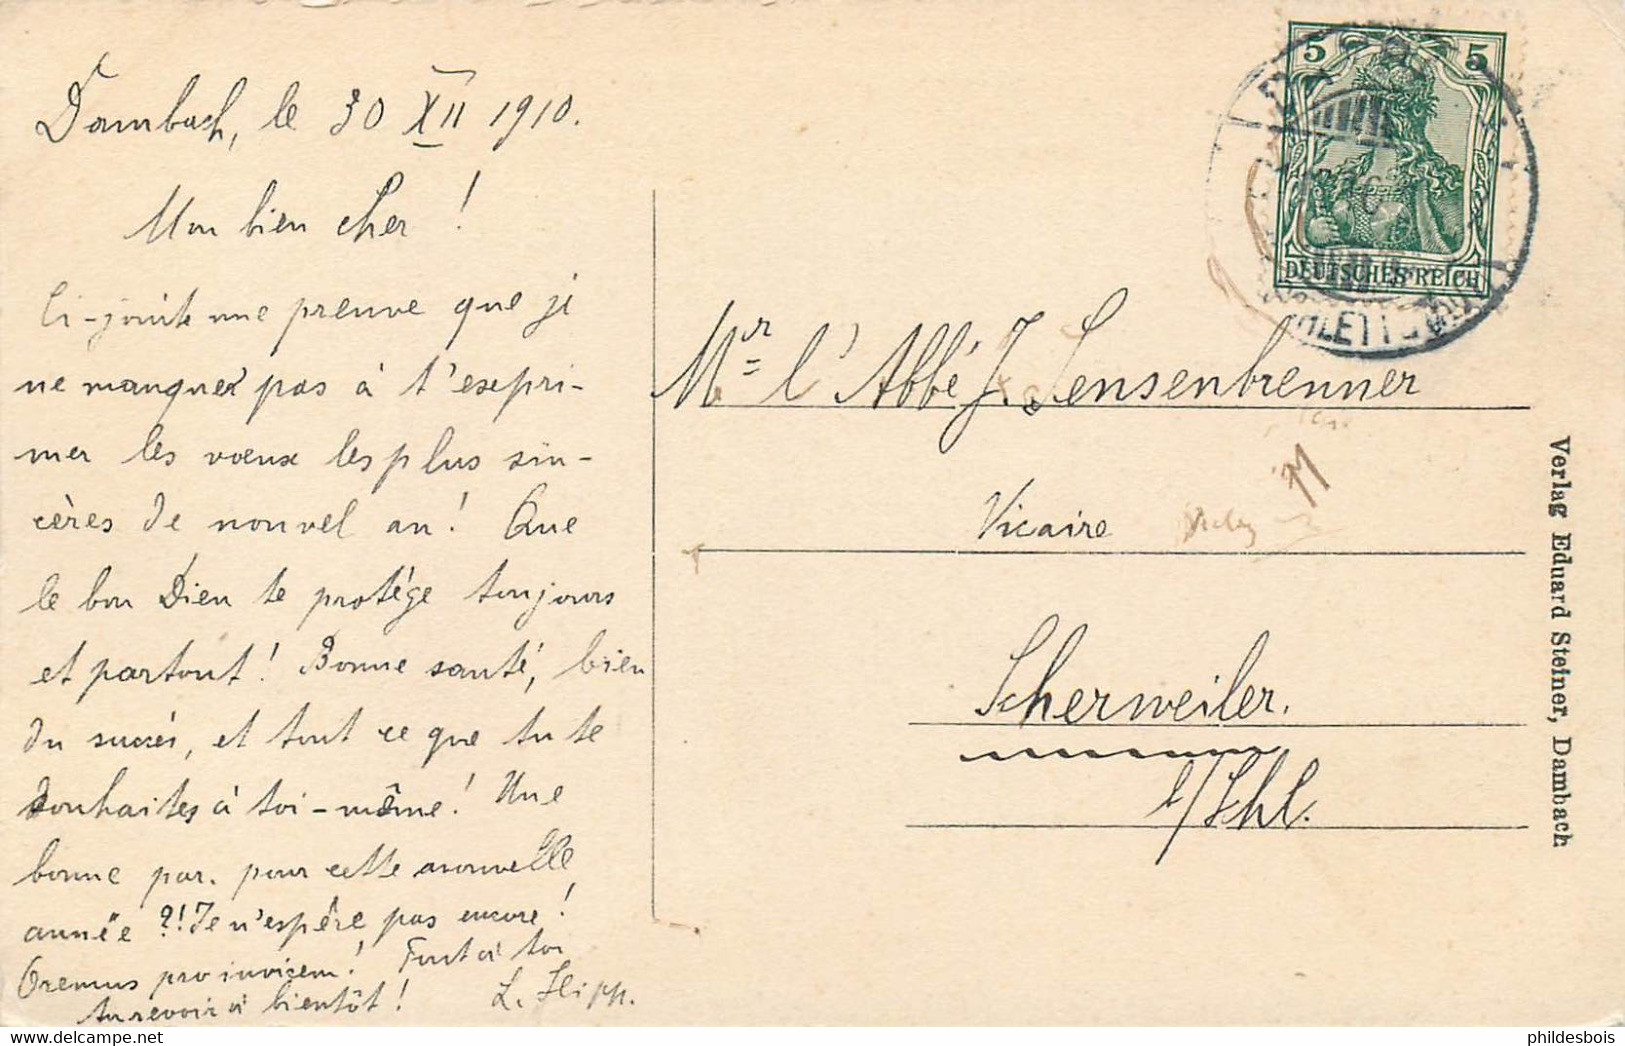 Dambach, le 30 XII 1910.
Mon bien cher !
Ci-jointe une preuve que je
ne manquer pas à t'expri-
mer les vœux les plus sin-
cères de nouvel an! Que
le bon Dieu te protège toujours
et partout! Bonne santé, bien
du succès, et tout ce que tu te
souhaites à toi-même! Une
bonne par. pour cette nouvelle
année ?! Je n'espère pas encore!
Oremus pro invicem! Tout à toi
Au revoir à bientôt! L. Hipp.
5 5
DEUTSCHES REICH
Mr l'Abbé J. Sensenbrenner
Vicaire
Scherweiler.
b/Schl.
Verlag Eduard Steiner, Dambach
phildesbois